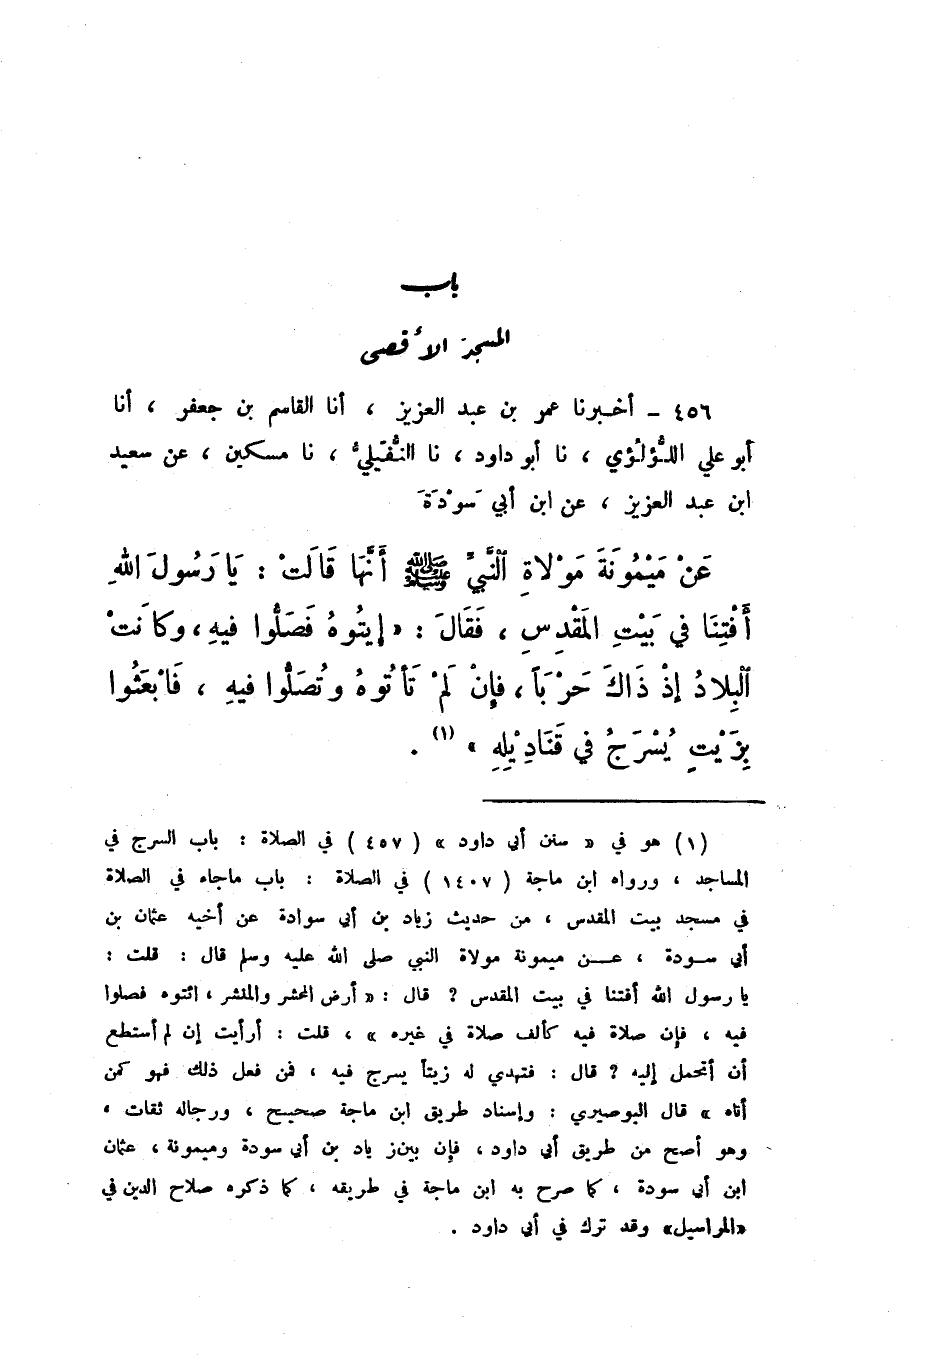 باب
المسجد الأقصى
٤٥٦ - أخبرنا عمر بن عبد العزيز ، أنا القاسم بن جعفر ، أنا
أبو علي اللُّؤلُؤي ، نا أبو داود ، نا النُّفَيليُّ ، نا مسكين ، عن سعيد
ابن عبد العزيز ، عن ابن أبي سَوْدَةَ
عَنْ مَيْمُونَةَ مَوْلاةِ النَّبيِّ ﷺ أَنَّهَا قَالَتْ : يَا رَسُولَ اللهِ
أَفْتِنَا في بَيْتِ المَقْدِسِ ، فَقَالَ : « إيتُوهُ فَصَلُّوا فيهِ ، وكَانَتْ
البِلادُ إذْ ذَاكَ حَرْبَاً ، فإنْ لَمْ تَأتُوهُ وتُصَلُّوا فيهِ ، فَابْعَثُوا
بِزَيْتٍ يُسْرَجُ في قَنَادِيْلِهِ » (١) .
(١) هو في « سنن أبي داود » ( ٤٥٧ ) في الصلاة : باب السرج في
المساجد ، ورواه ابن ماجة ( ١٤٠٧ ) في الصلاة : باب ماجاء في الصلاة
في مسجد بيت المقدس ، من حديث زياد بن أبي سوادة عن أخيه عثمان بن
أبي سودة ، عن ميمونة مولاة النبي صلى الله عليه وسلم قال : قلت :
يا رسول الله أفتنا في بيت المقدس ? قال : « أرض المحشر والمنشر ، ائتوه فصلوا
فيه ، فإن صلاة فيه كألف صلاة في غيره » ، قلت : أرأيت إن لم أستطع
أن أتحمل إليه ? قال : فتهدي له زيتاً يسرج فيه ، فمن فعل ذلك فهو كمن
أتاه » قال البوصيري : وإسناد طريق ابن ماجة صحيح ، ورجاله ثقات ،
وهو أصح من طريق أبي داود ، فإن بين ز ياد بن أبي سودة وميمونة ، عثمان
ابن أبي سودة ، كما صرح به ابن ماجة في طريقه ، كما ذكره صلاح الدين في
«المراسيل» وقد ترك في أبي داود .